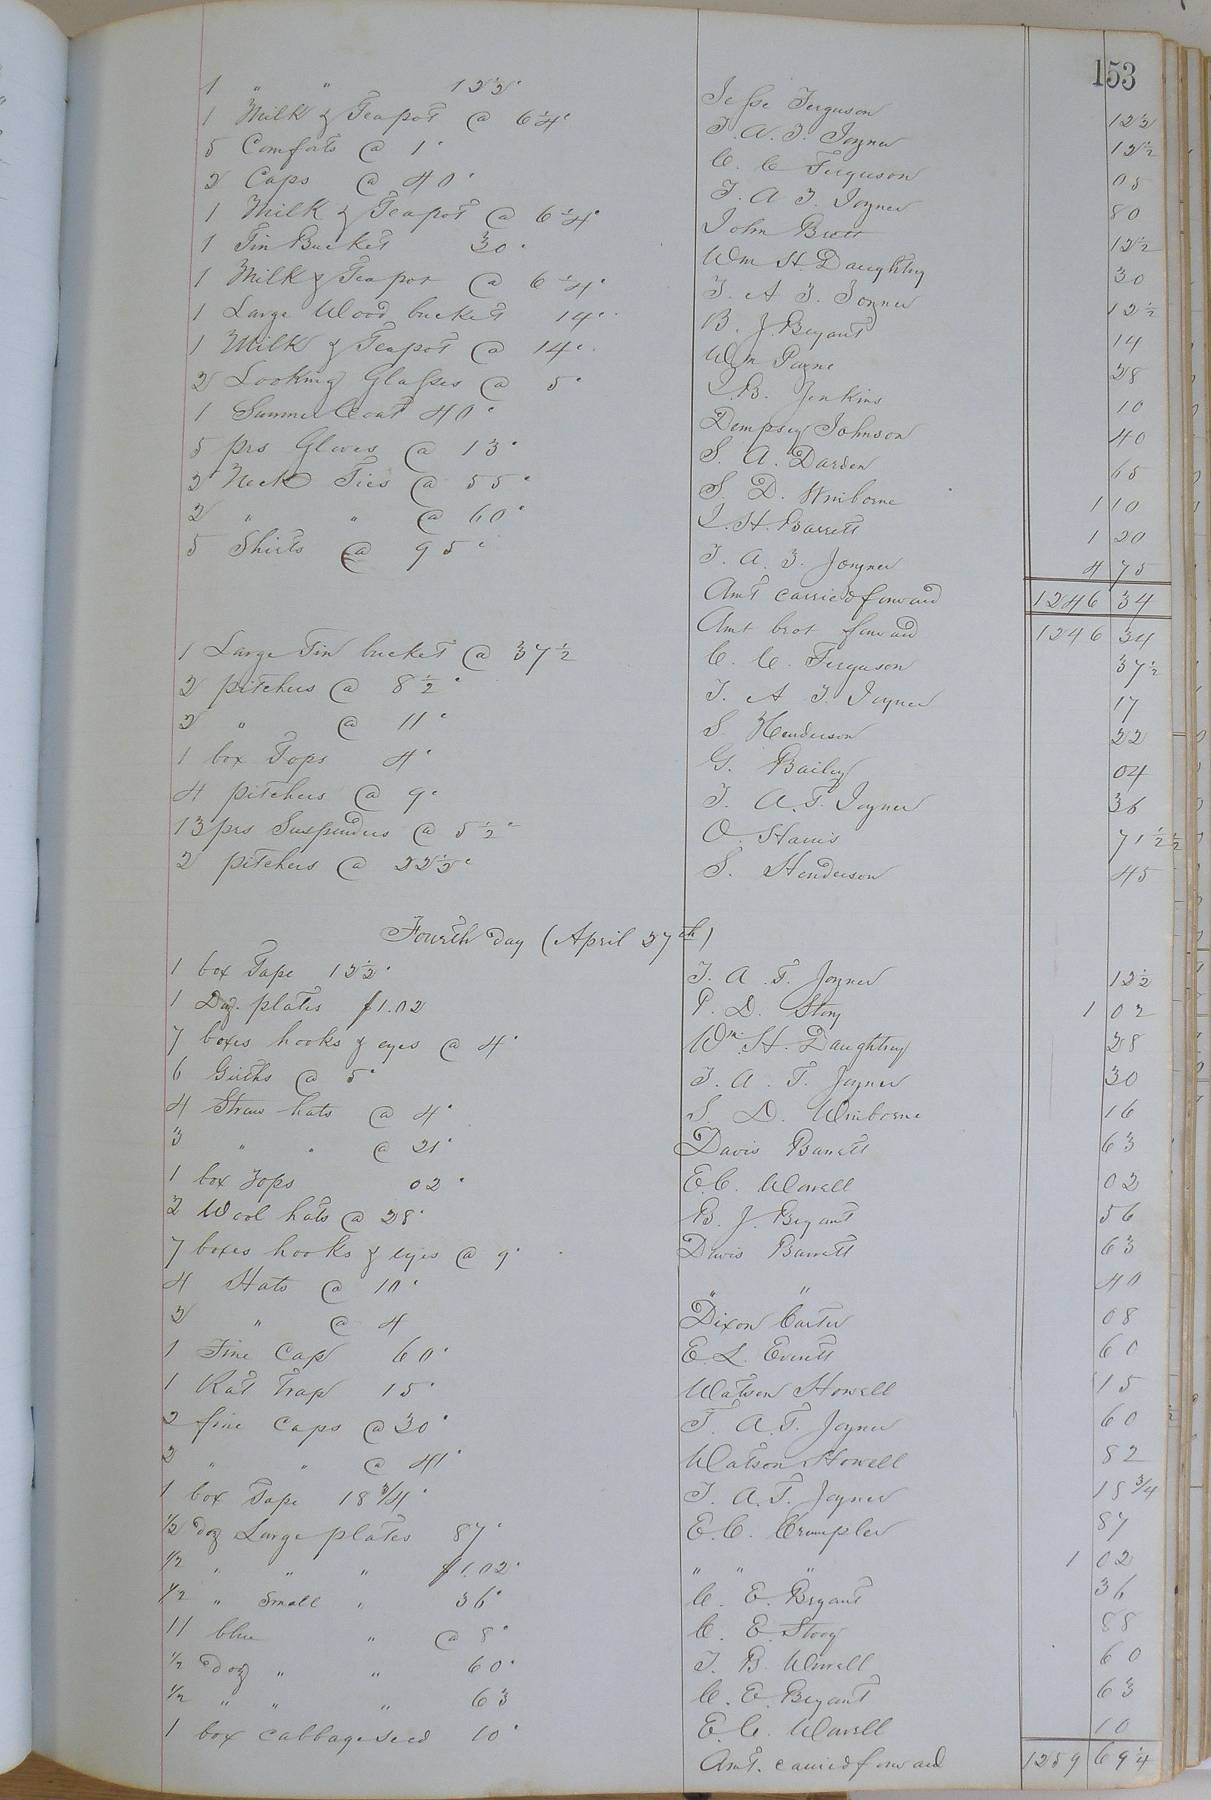 153
1 " " 12½c Jesse Ferguson 12½
1 Milk & Teapot @ 6¼c T. A. T. Joyner 12½
5 Comforts @ 1c C. C. Ferguson 05
2 Caps @ 40c T. A. T. Joyner 80
1 Milk & Teapot @ 6¼c John Brett 12½
1 Tin Bucket 30c Wm H. Daughtry 30
1 Milk & Teapot @ 6¼c T. A. T. Joyner 12½
1 Large Wood bucket 14c B. J. Bryant 14
1 Milk & Teapot @ 14c Wm Payne 28
2 Looking Glasses @ 5c L. B. Jenkins 10
1 Summer Coat 40c Dempsey Johnson 40
5 prs Gloves @ 13c S. A. Darden 65
2 Neck Ties @ 55c S. D. Winborne 1 10
2 " " @ 60c L. H. Barrett 1 20
5 Shirts @ 95c T. A. T. Joyner 4 75
Amt carried forward 1246 34
Amt brot forward 1246 34
1 Large Tin bucket @ 37½ C. C. Ferguson 37½
2 pitchers @ 8½c T. A. T. Joyner 17
2 " @ 11c S. Henderson 22
1 box Tops 4c G. Bailey 04
4 pitchers @ 9c T. A. T. Joyner 36
13 prs Suspenders @ 5½c O. Harris 71½
2 pitchers @ 22½c S. Henderson 45
Fourth day (April 27th)
1 box Tape 12½c T. A. T. Joyner 12½
1 Doz. plates $1.02 P. D. Story 1 02
7 boxes hooks & eyes @ 4c Wm. H. Daughtry 28
6 Girths @ 5c T. A. T. Joyner 30
4 Straw hats @ 4c S. D. Winborne 16
3 " " @ 21c Davis Barrett 63
1 box Tops 02c E. C. Worrell 02
2 Wool hats @ 28c B. J. Bryant 56
7 boxes hooks & eyes @ 9c Davis Barrett 63
4 Hats @ 10c " " 40
2 " @ 4 Dixon Carter 08
1 Fine Cap 60c E L. Everett 60
1 Rat Trap 15c Watson Howell 15
2 fine Caps @ 30c T. A. T. Joyner 60
2 " " @ 41c Watson Howell 82
1 box Tape 18¾c T. A. T. Joyner 18¾
1/2 doz Large plates 87c E. C. Crumpler 87
1/2 " " " $1.02c " " " 1 02
1/2 " Small " 36c C. E. Bryant 36
11 blue " @ 8c C. E. Story 88
1/2 doz " " 60c T. B. Worrell 60
1/2 " " " 63 C. E. Bryant 63
1 box cabbage seed 10c E. C. Worrell 10
Amt. carried forward 1259 69¼